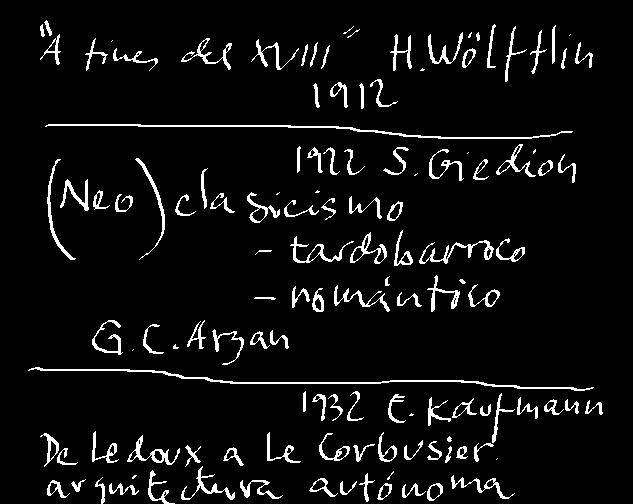 "A fines del XVIII" H. Wölfflin
1912
1922 S. Giedion
(Neo) clasicismo
- tardobarroco
- romántico
G. C. Argan
1932 E. Kaufmann
De Ledoux a Le Corbusier.
arquitectura autónoma